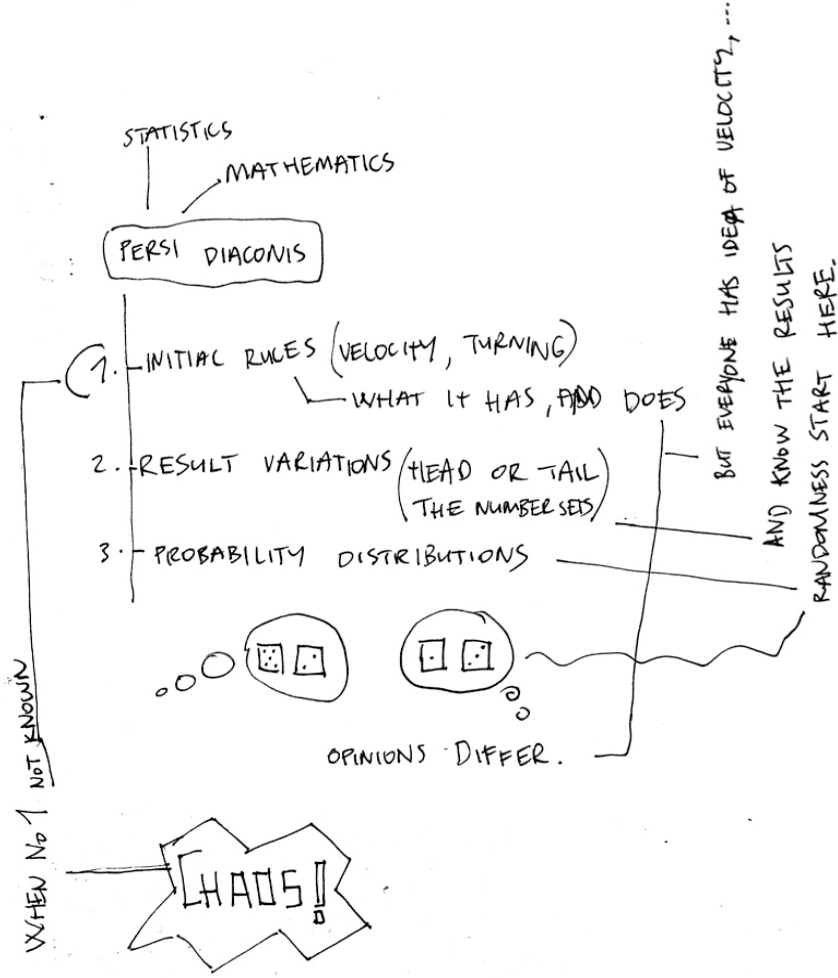 STATISTICS
MATHEMATICS
PERSI DIACONIS
1. INITIAL RULES (VELOCITY, TURNING)
WHAT IT HAS, AND DOES
2. RESULT VARIATIONS (HEAD OR TAIL
THE NUMBER SETS)
3. PROBABILITY DISTRIBUTIONS
OPINIONS DIFFER.
BUT EVERYONE HAS IDEA OF VELOCITY, ...
AND KNOW THE RESULTS
RANDOMNESS START HERE.
WHEN No 1 NOT KNOWN
CHAOS!